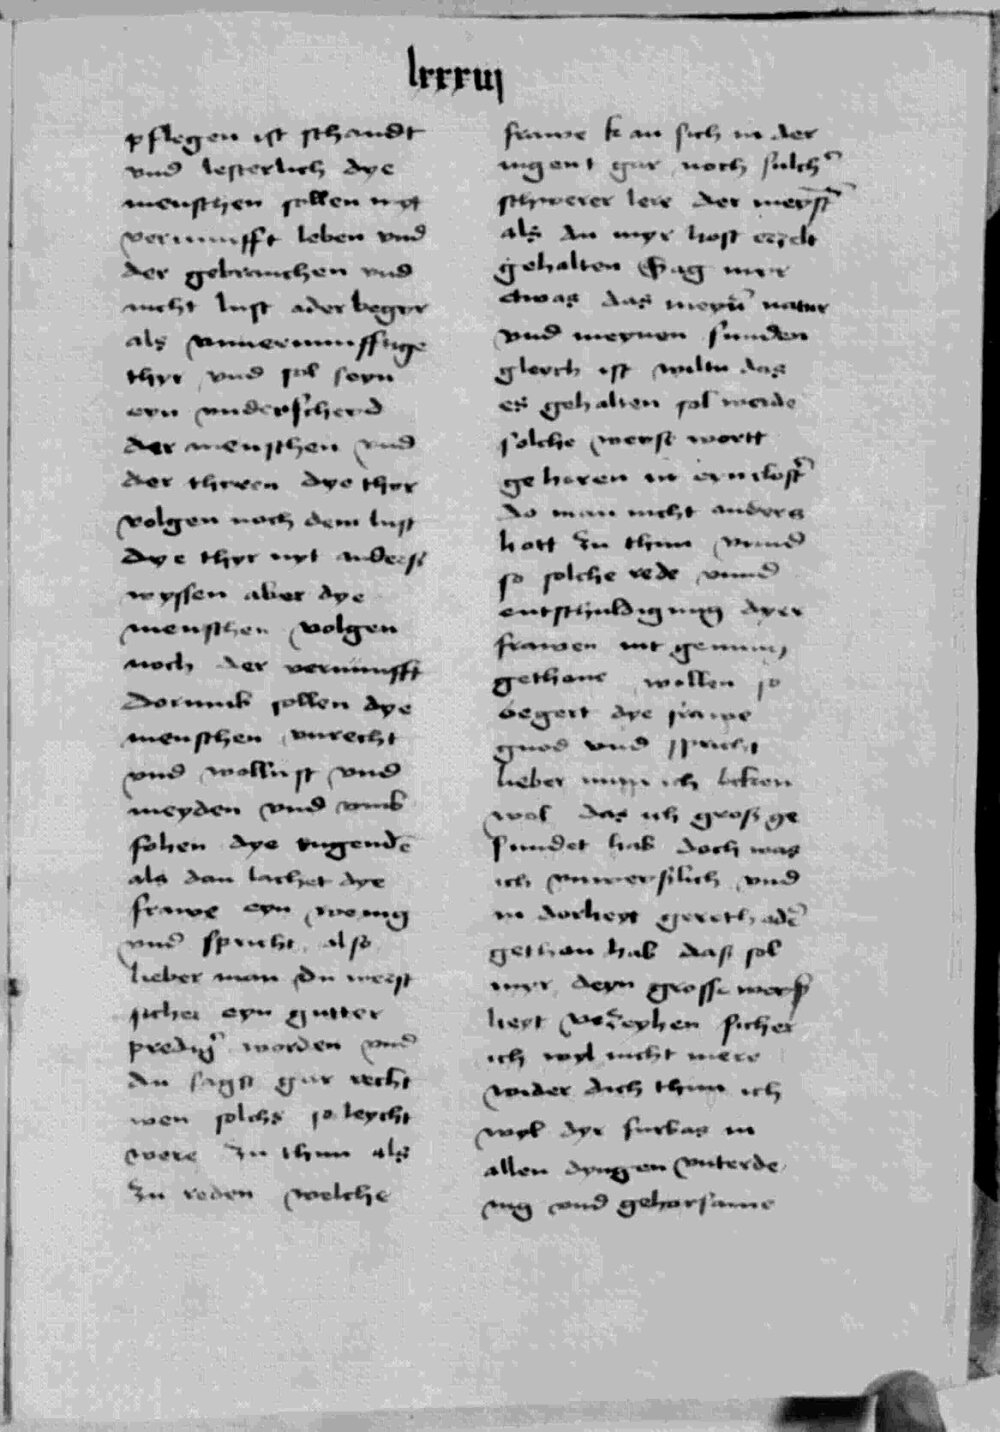 lxxxiij
pflegen ist schandt
vnd lesterlich dye
menschen sollen myt
vernunfft leben vnd
der gebrauchen vnd
nicht lust ader begyr
als vnuernunfftige
thyr vnd sol seyn
eyn vnderscheyd
der menschen vnd
der thyren dye thyr
volgen noch dem lust
dye thyr nyt anders
wyssen aber dye
menschen volgen
noch der vernunfft
Dorumb sollen dye
menschen vnrecht
vnd wollust vnd
meyden vnd vmb
fohen dye tugendē
als dan lachet dye
frawe eyn wenig
vnd spricht also
lieber man du weist
sicher eyn gutter
worden vnd
du sagst gar recht
wen solchs so leycht
were zu thun als
zu reden welche
frawe kan sich in der
iugent gar noch sulch
schwerer lere der
als du myr host erzelt
gehalten Sag myr
etwas das meyn̄ natur
vnd meynen sunden
gleych ist wiltu das
es gehalten sol werde
solche weyse wortt
gehoren in eyn
do man nicht anders
hott zu thun vnnd
so solche rede vnnd
entschuldigung dyer
frawen nit genung
gethane wollen so
begert dye frawe
gnod vnd spricht
lieber man ich beken
wol das ich groß ge
sundet hab doch was
ich vnweyslich vnd
in dorheyt
gethan hab daß sol
myr deyn grosse
heyt verzeyhen sicher
ich wyl nicht mere
wider dich thun ich
wyl dyr furbas in
allen dyngen vnterde
nig vnd gehorsame